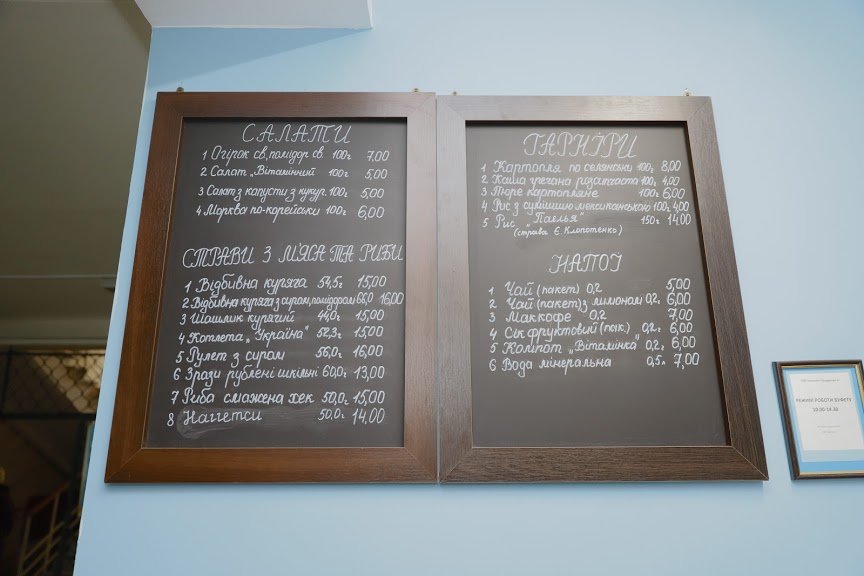 САЛАТИ
1 Огірок св, помідор св. 100г 7,00
2 Салат „Вітамінний" 100г 5,00
3 Салат з капусти з кукур. 100г 5,00
4 Морква по-корейськи 100г 6,00
СТРАВИ З М'ЯСА ТА РИБИ
1 Відбивна куряча 54,5г 15,00
2 Відбивна куряча з сиром, помідором 66,0 16,00
3 Шашлик курячий 44,0г 15,00
4 Котлета „Україна" 52,3г 15,00
5 Рулет з сиром 56,0г 16,00
6 Зрази рублені шкільні 60,0г 13,00
7 Риба смажена хек 50,0г 15,00
8 Наггетси 50,0г 14,00
ГАРНІРИ
1 Картопля по селянськи 100г 8,00
2 Каша гречана розсипчаста 100г 4,00
3 Пюре картопляне 100г 6,00
4 Рис з сумішшю мексиканською 100г 4,00
5 Рис "Паелья" 150г 14,00
(страва Є. Клопотенко)
НАПОЇ
1 Чай (пакет) 0,2 5,00
2 Чай (пакет) з лимоном 0,2 6,00
3 Маккофе 0,2 7,00
4 Сік фруктовий (пак.) 0,2г 6,00
5 Компот „Вітамінка" 0,2г 6,00
6 Вода мінеральна 0,5л 7,00
РЕЖИМ РОБОТИ БУФЕТУ
10.00-14.30